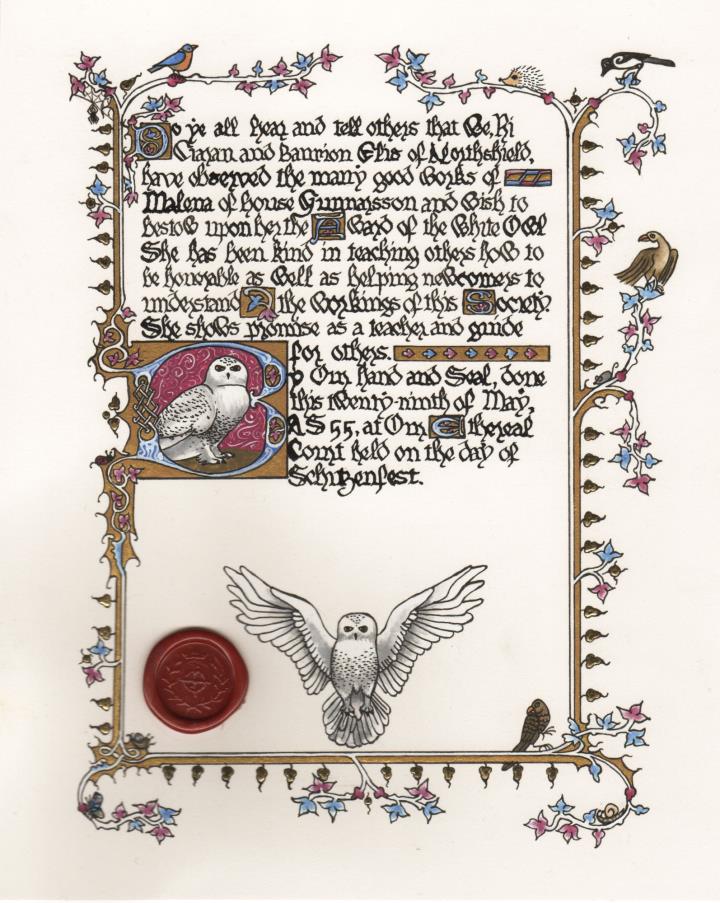 Do ye all hear and tell others that We, Ri
Ciaran and Banrion Elis of Northshield,
have observed the many good works of
Malena of house Gunnarsson and wish to
bestow upon her the Award of the White Owl
She has been kind in teaching others how to
be honorable as well as helping newcomers to
understand the workings of this Society.
She shows promise as a teacher and guide
for others.
By Our Hand and Seal, done
this twenty-ninth of May,
A S 55, at Our Ethereal
Court held on the day of
Schützenfest.